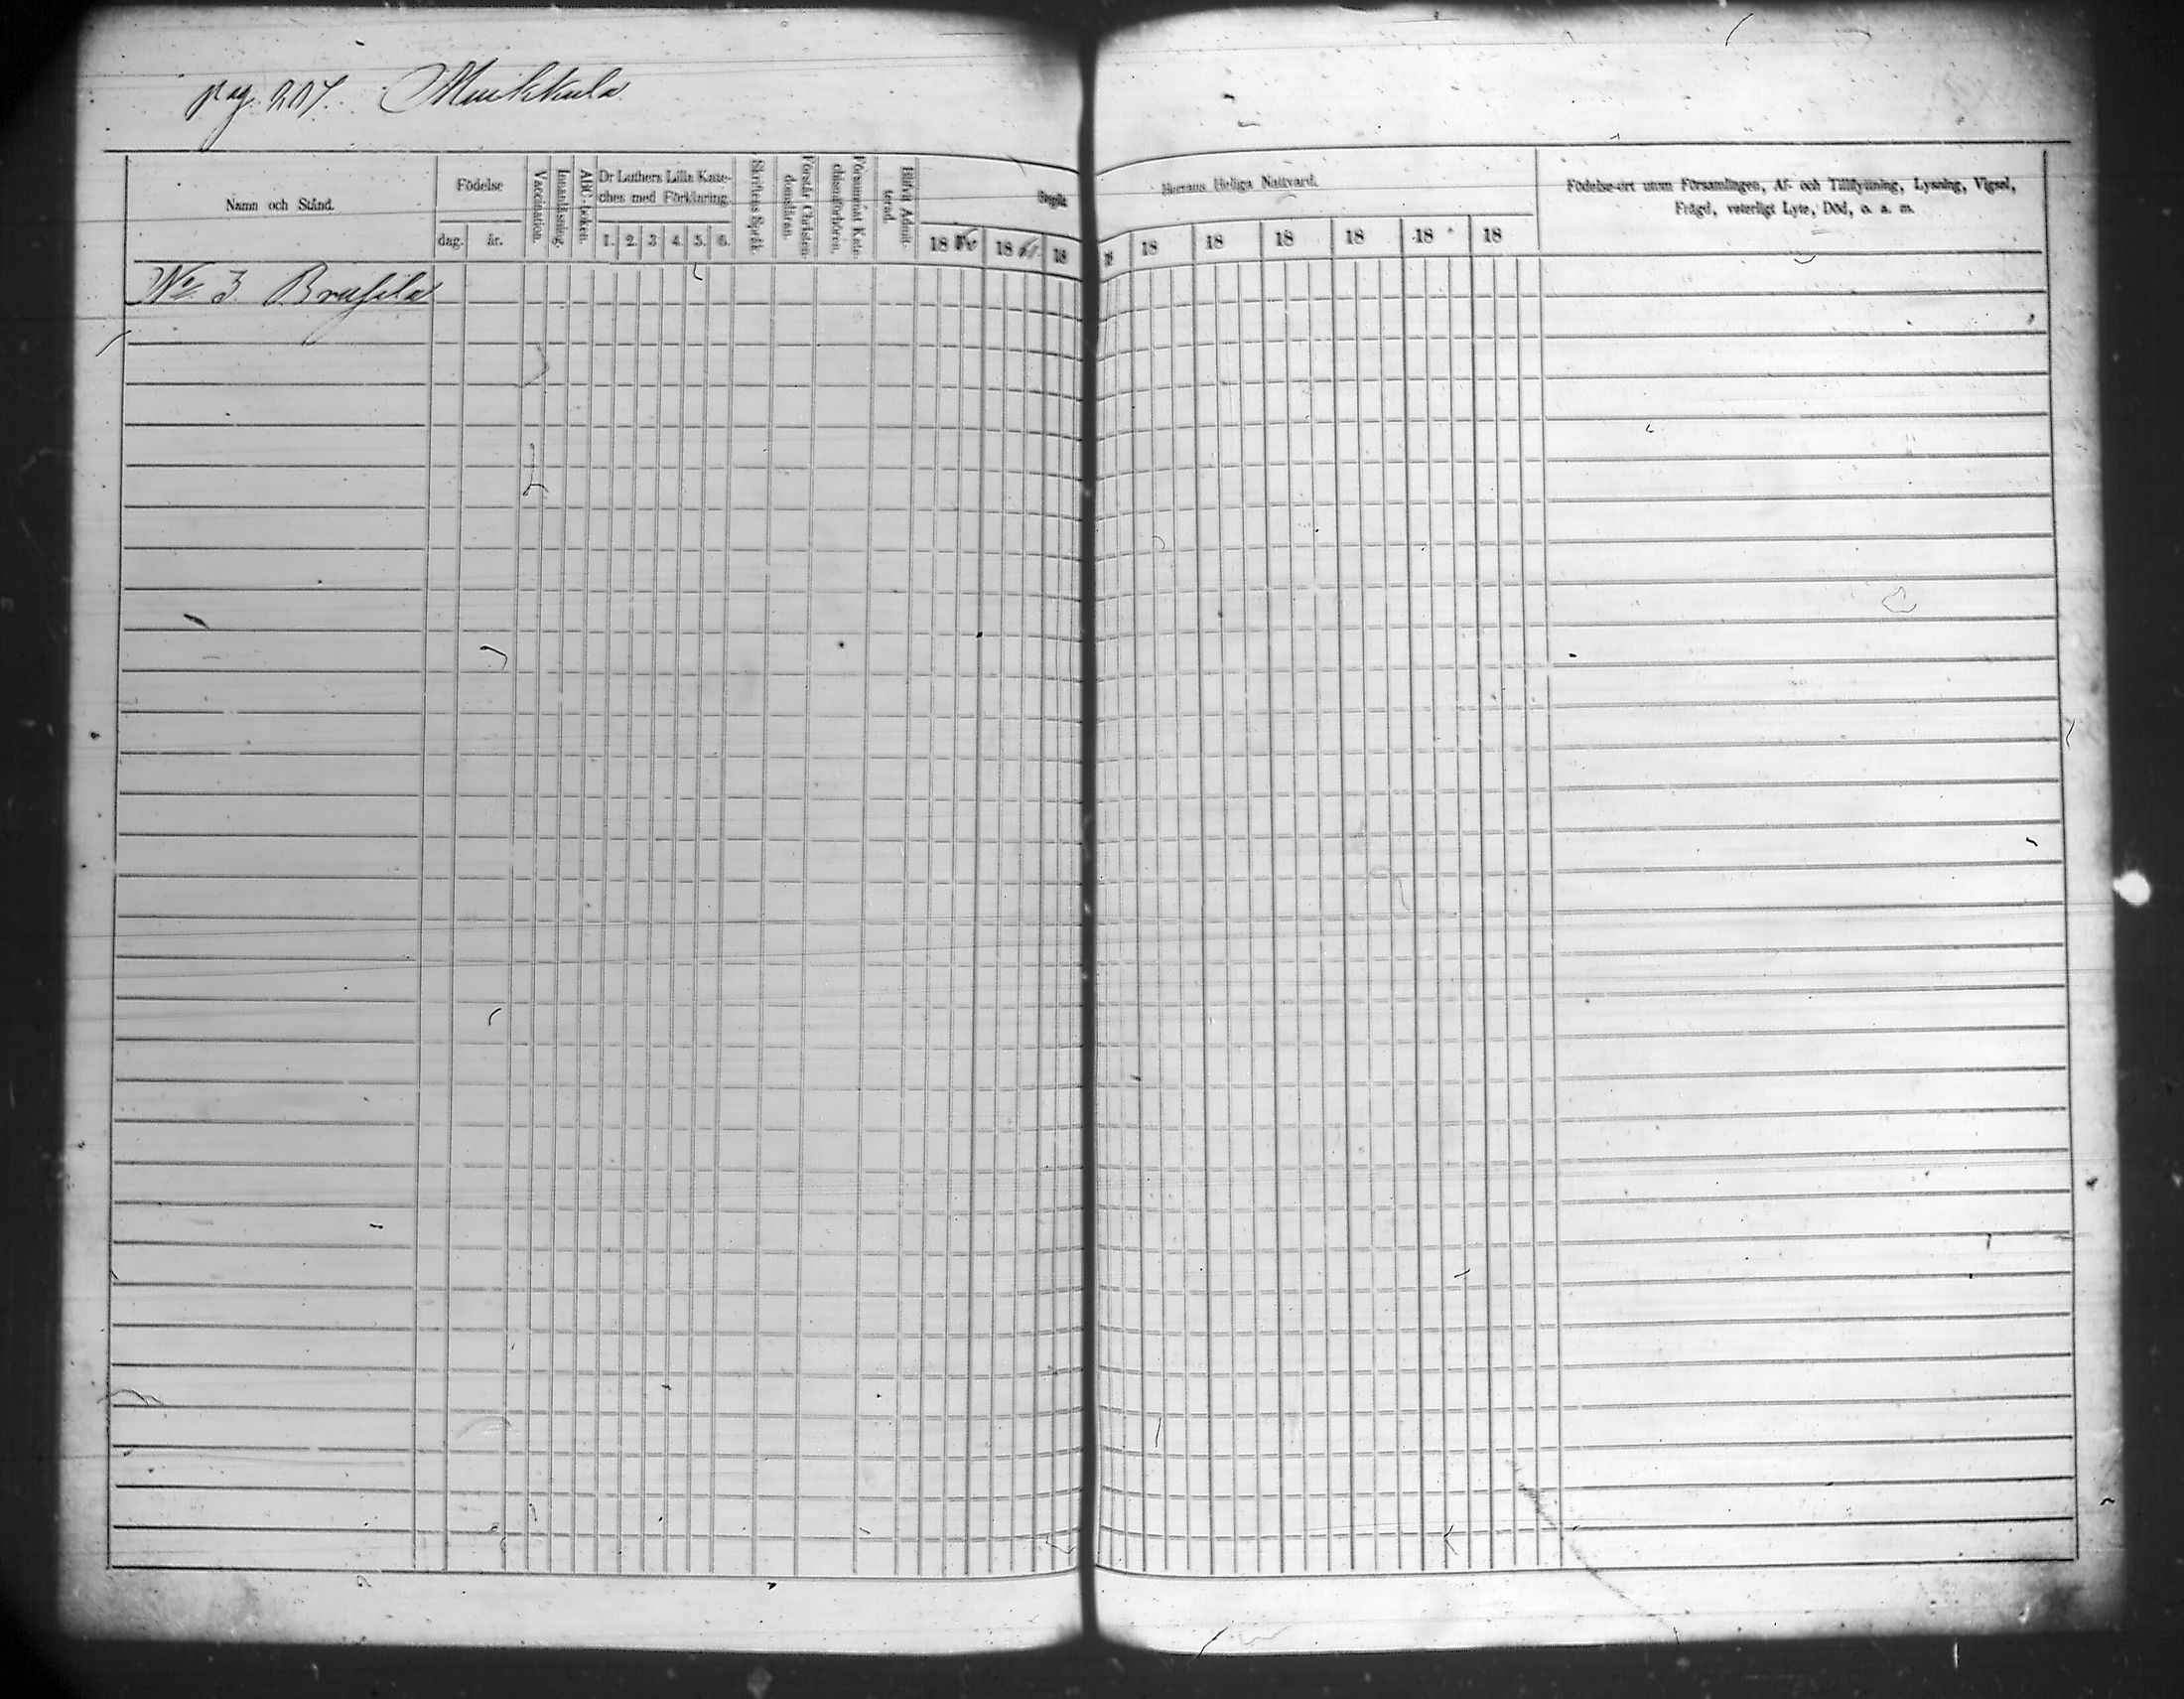 pag. 207. Muikkula
Namn och Stånd.
Födelse
dag.
år.
Vaccination.
Innanläsning.
ABC-boken.
Dr Luthers Lilla Kate-
ches med Förklaring.
1. 2. 3. 4. 5. 6.
Skriftens Språk.
Förstår Christen-
domsläran.
Försummat Kate-
chismiförhören.
Blifvit Admit-
terad.
Begått
18 18 18
Herrans Heliga Nattvard.
18 18 18 18 18 18 18
Födelse-ort utom Församlingen, Af- och Tillflyttning, Lysning, Vigsel,
Frägd, veterligt Lyte, Död, o. a. m.
No 3 Brussila